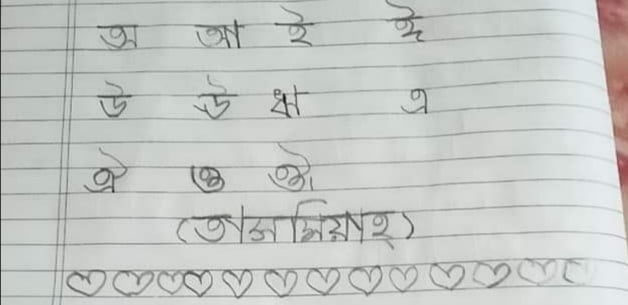 অ আ ই ঈ
উ ঊ ঋ এ
ঐ ও ঔ
(তাসমিয়াহ্)